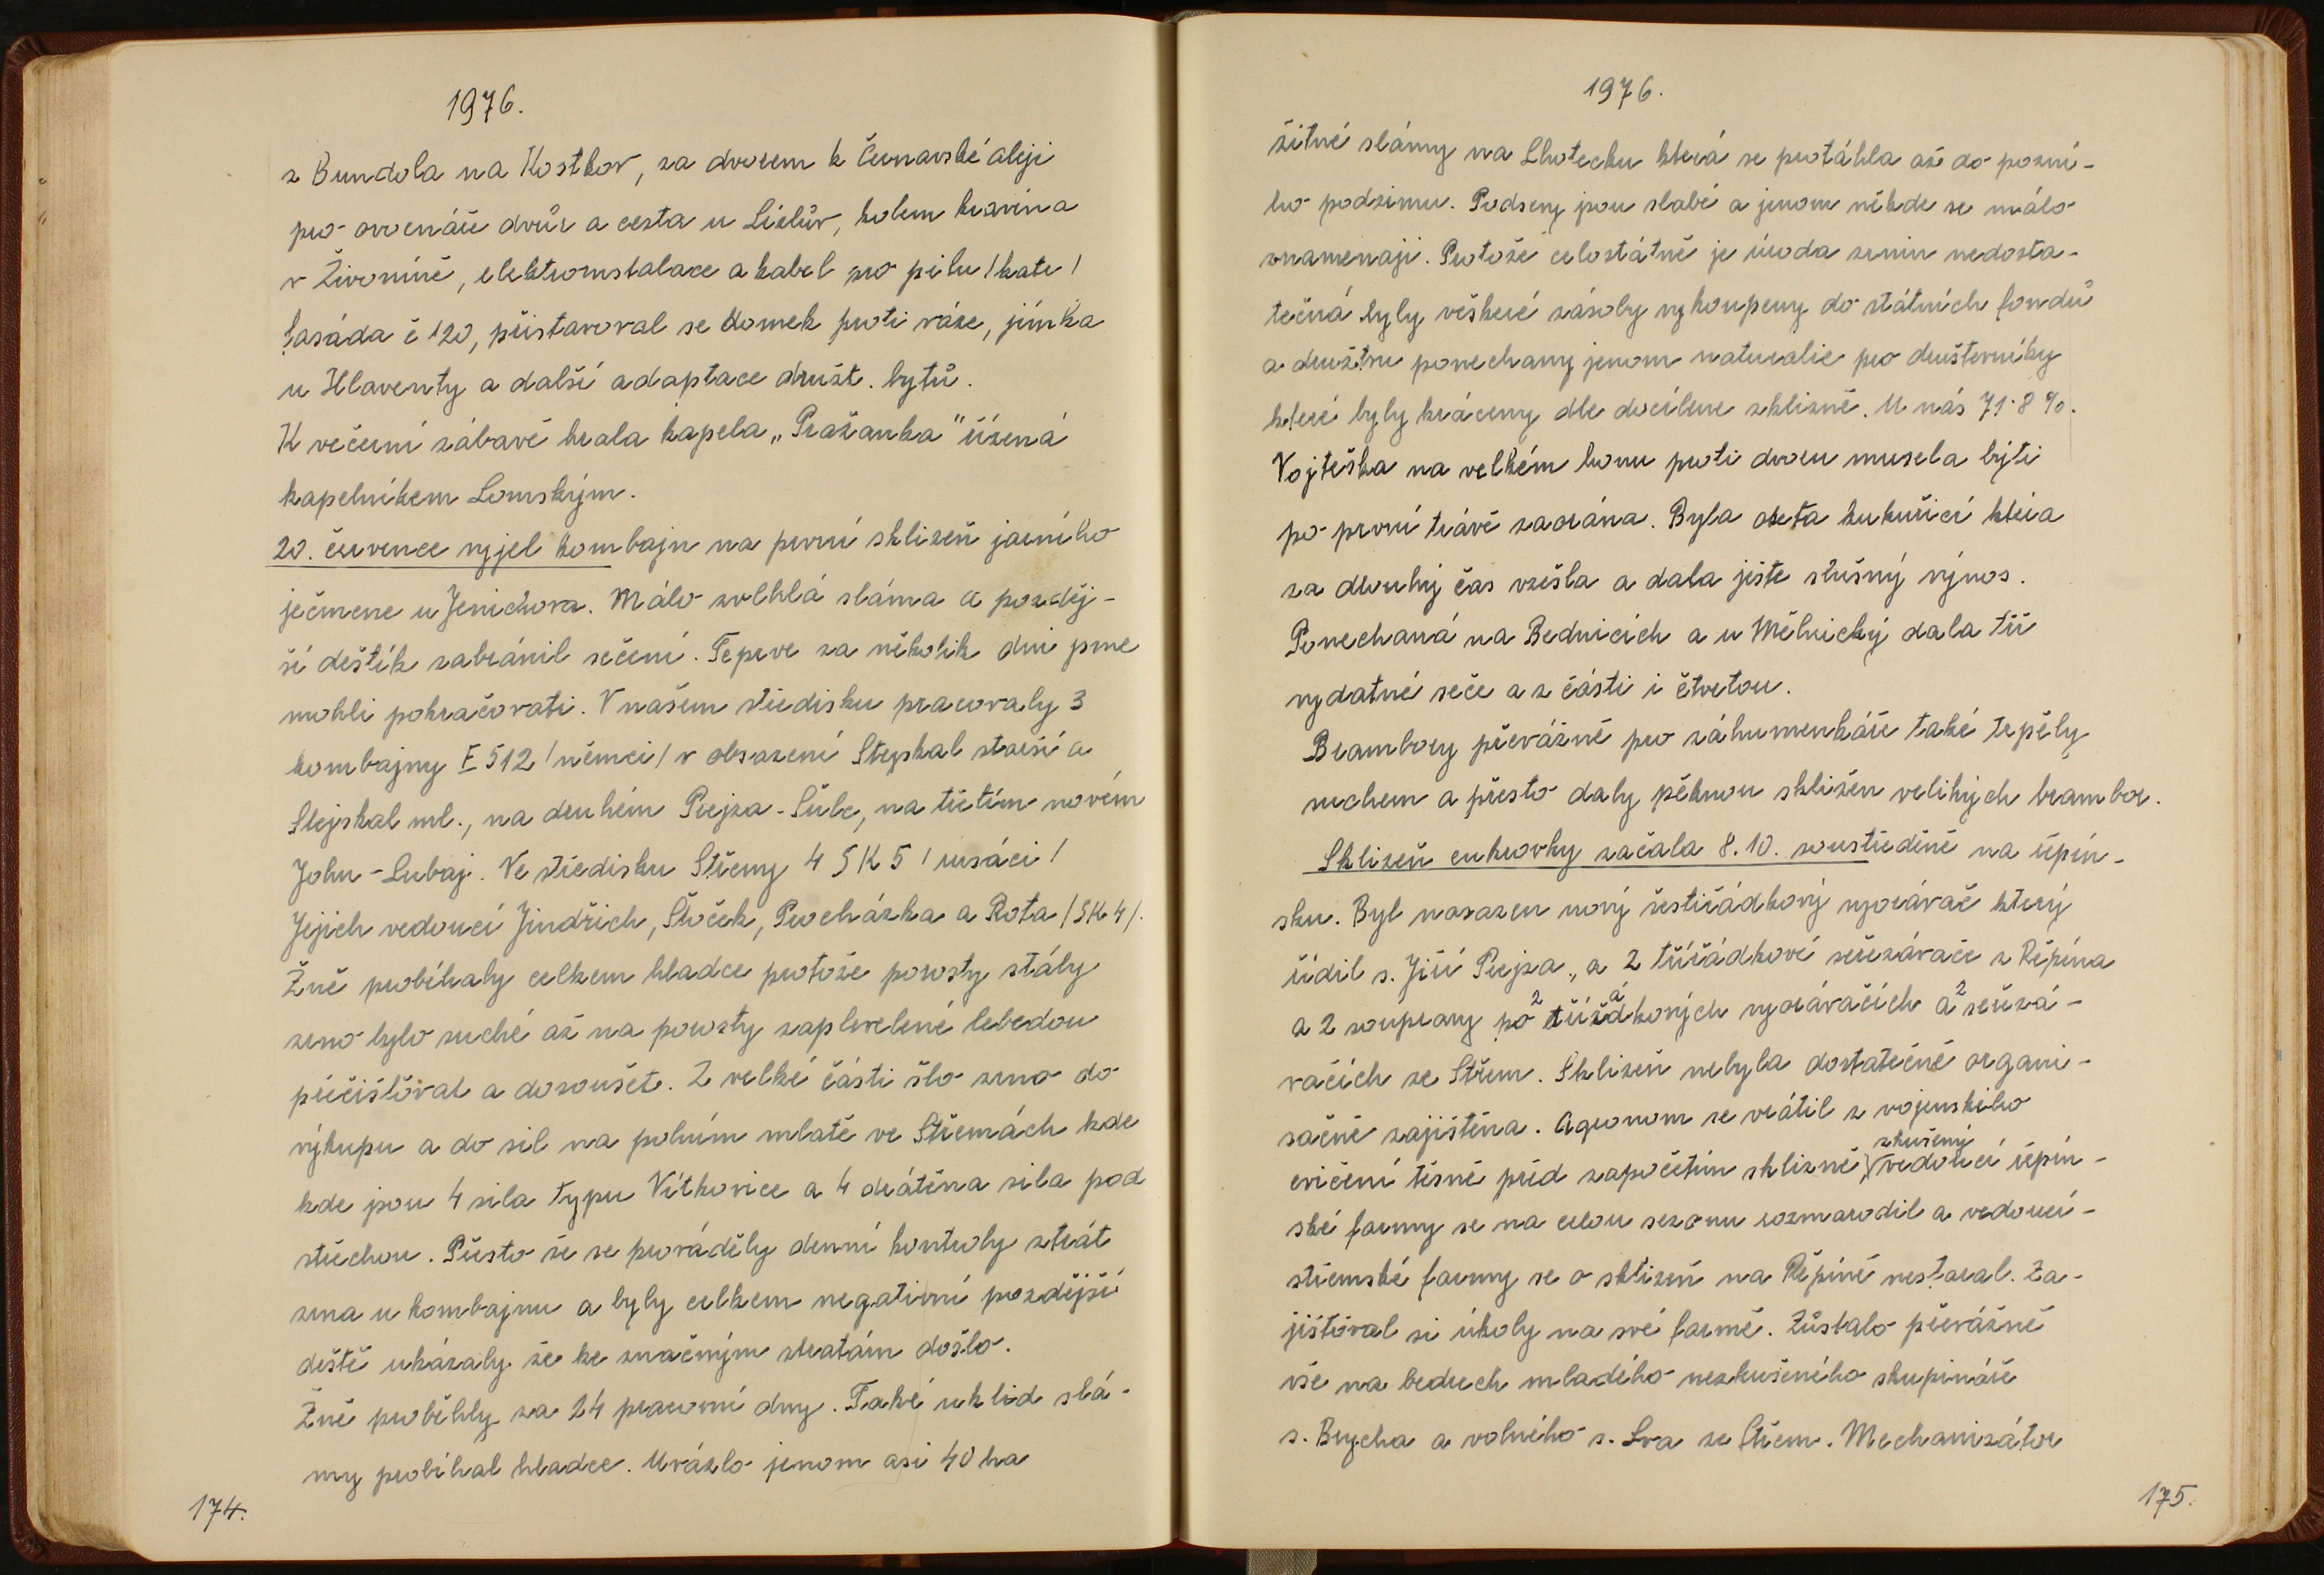 1976.
z Bundola na Kostkov, za dvorem k Černavské aleji
pro ovocnáře dvůr a cesta u Lízlův, kolem kravína
v Živoníně, elektroinstalace a kabel pro pilu /katr/
fasáda č 120, přistavoval se domek proti váze, jímka
u Hlaventy a další adaptace družst. bytů.
K večerní zábavě hrála kapela „Pražanka" řízená
kapelníkem Lomským.
20. července vyjel kombajn na první sklizeň jarního
ječmene u Jenichova. Málo zvlhlá sláma a pozděj-
ší deštík zabránil sečení. Teprve za několik dní jsme
mohli pokračovati. V našem středisku pracovaly 3
kombajny E 512 /němci/ v obsazení Stejskal starší a
Stejskal ml., na druhém Prejza - Šulc, na třetím novém
John - Lubaj. Ve středisku Střemy 4 SK 5 /rusáci/
Jejich vedoucí Jindřich, Štoček, Procházka a Rota /SK 4/.
Žně probíhaly celkem hladce protože porosty stály
zrno bylo suché až na porosty zaplevelené lebedou
přečišťovat a dosoušet. Z velké části šlo zrno do
výkupu a do sil na polním mlatě ve Střemách kde
kde jsou 4 sila typu Vítkovice a 4 drátěna sila pod
střechou. Přesto že se prováděly denní kontroly ztrát
zrna u kombajnu a byly celkem negativní pozdější
deště ukázaly že ke značným ztratám došlo.
Žně proběhly za 24 pracovní dny. Také uklid slá-
my probíhal hladce. Uvázlo jenom asi 40 ha
174.
1976.
žitné slámy na Lhotecku která se protáhla až do pozní-
ho podzimu. Podsevy jsou slabé a jenom někde se málo
znamenaji. Protože celostátně je úroda zrnin nedosta-
tečná byly veškeré zásoby vykoupeny do státních fondů
a družstvu ponechany jenom naturalie pro družstevníky
které byly kráceny dle docílene sklizně. U nás 71·8 %.
Vojteška na velkém honu proti dvoru musela býti
po první trávě zaorána. Byla oseta kukuřicí která
za dlouhý čas vzešla a dala ješte slušný výnos.
Ponechaná na Bednicích a u Mělnický dala tři
vydatné seče a z části i čtvrtou.
Brambory převážně pro záhumenkáře také trpěly
suchem a přesto daly pěknou sklizen velikých brambor.
Sklizeň cukrovky začala 8.10. soustředěně na řepín-
sku. Byl nasazen nový šestiřádkový vyorávač který
řídil s. Jiří Prejza, a 2 třířádkové seřezávače z Řepína
a 2 soupravy po 2 třířádkových vyorávačích a 2 seřezá-
vačích ze Střem. Sklizeň nebyla dostatečně organi-
začně zajištěna. Agronom se vrátil z vojenského
cvičení těsně před započetím sklizně, zkušený vedoucí řepín-
ské farmy se na celou sezonu rozmarodil a vedoucí-
střemské farmy se o sklizeň na Řepíně nestaral. Za-
jišťoval si úkoly na své farmě. Zůstalo převážně
vše na bedrech mladého nezkušeného skupináře
s. Brycha a volného s. Lva ze Střem. Mechanizátor
175.